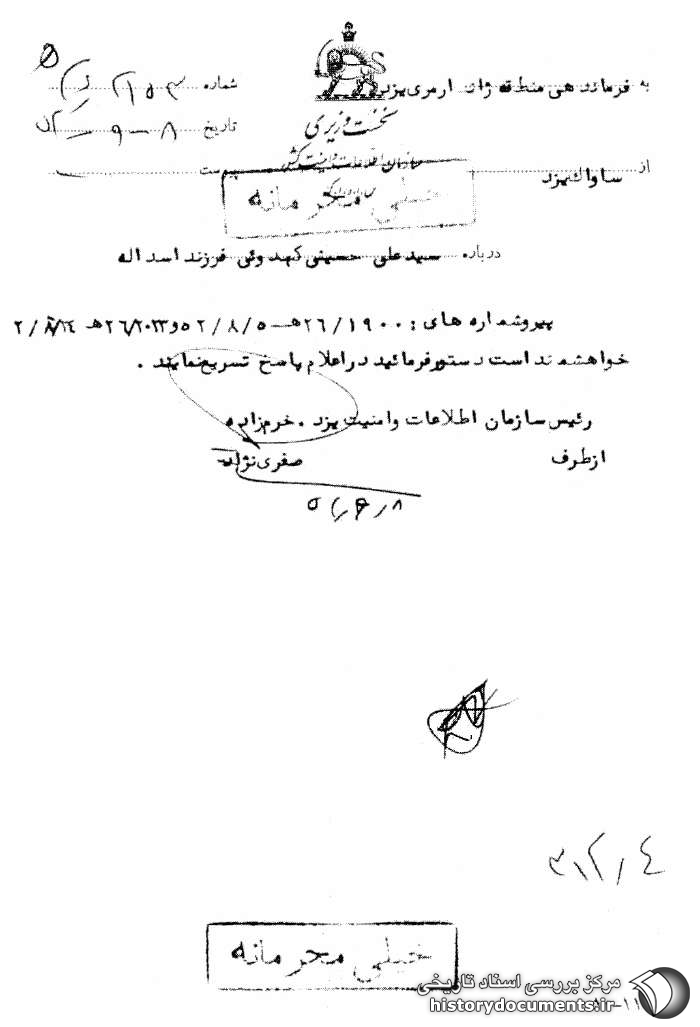 به فرماندهی منطقه ژاندارمری یزد
نخست وزیری
سازمان اطلاعات و امنیت کشور
شماره
تاریخ ۸-۹-
پیوست
از ساواک یزد
خیلی محرمانه
درباره سید علی حسینی کهدوئی فرزند اسداله
پیرو شماره های : ۲۶/۱۹۰۰هـ-۵۲/۸/۵ و ۲۶/۲۰۲۳هـ
خواهشمند است دستور فرمائید در اعلام پاسخ تسریع نمایند .
رئیس سازمان اطلاعات و امنیت یزد . خرم زاده
از طرف صفری نژاد
خیلی محرمانه
مرکز بررسی اسناد تاریخی
historydocuments.ir